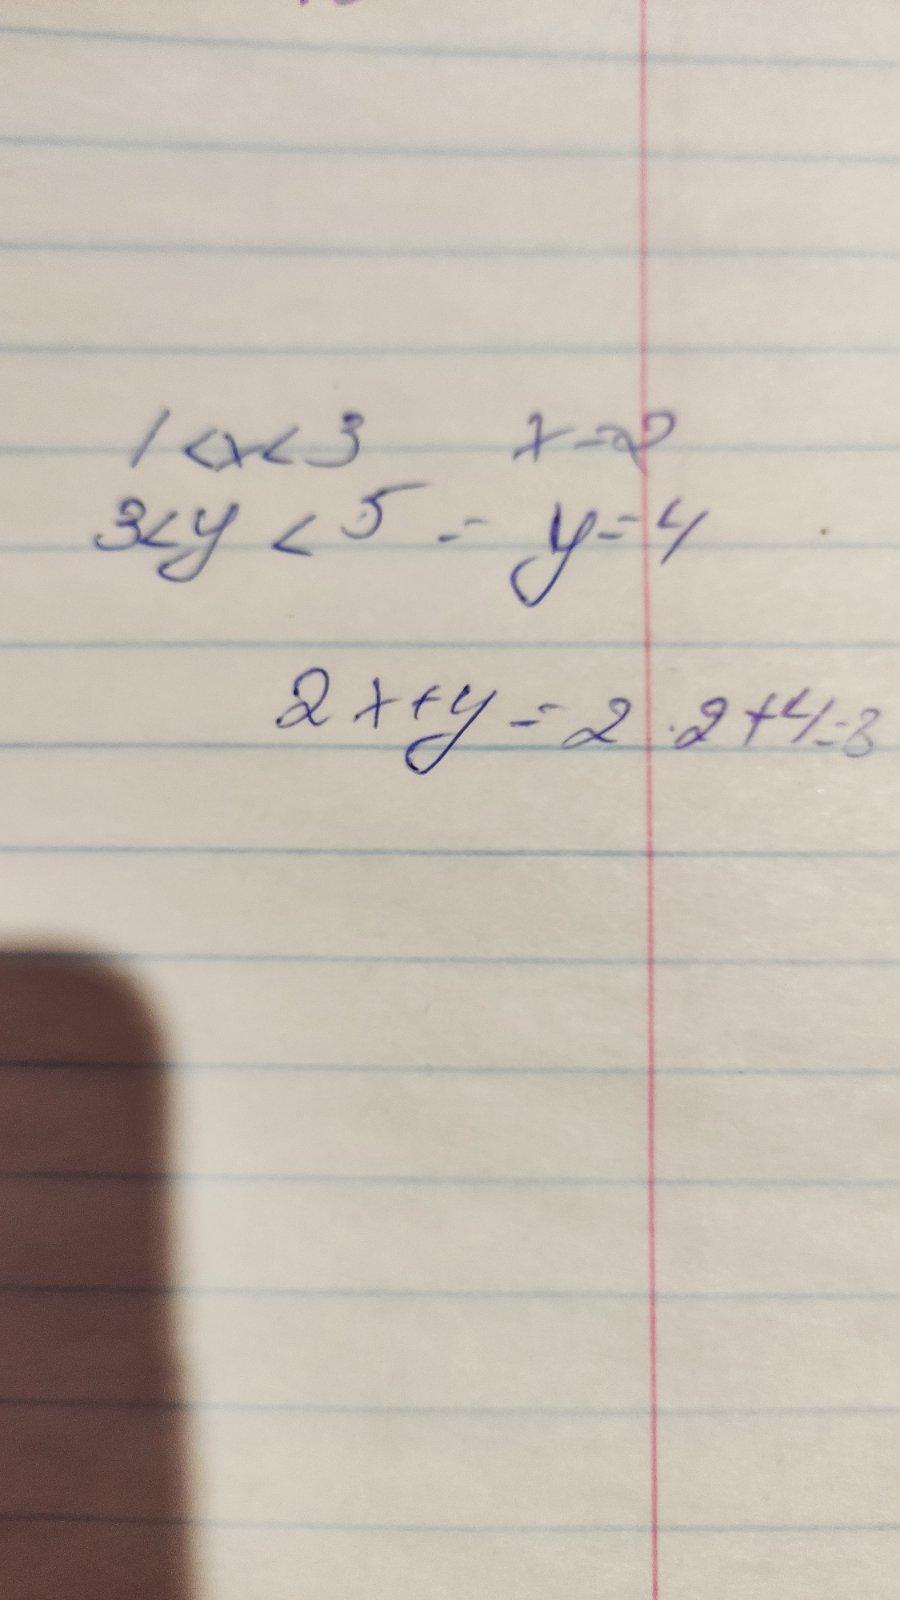 1 < x < 3 x = 2
3 < y < 5 = y = 4
2x + y = 2 · 2 + 4 = 8